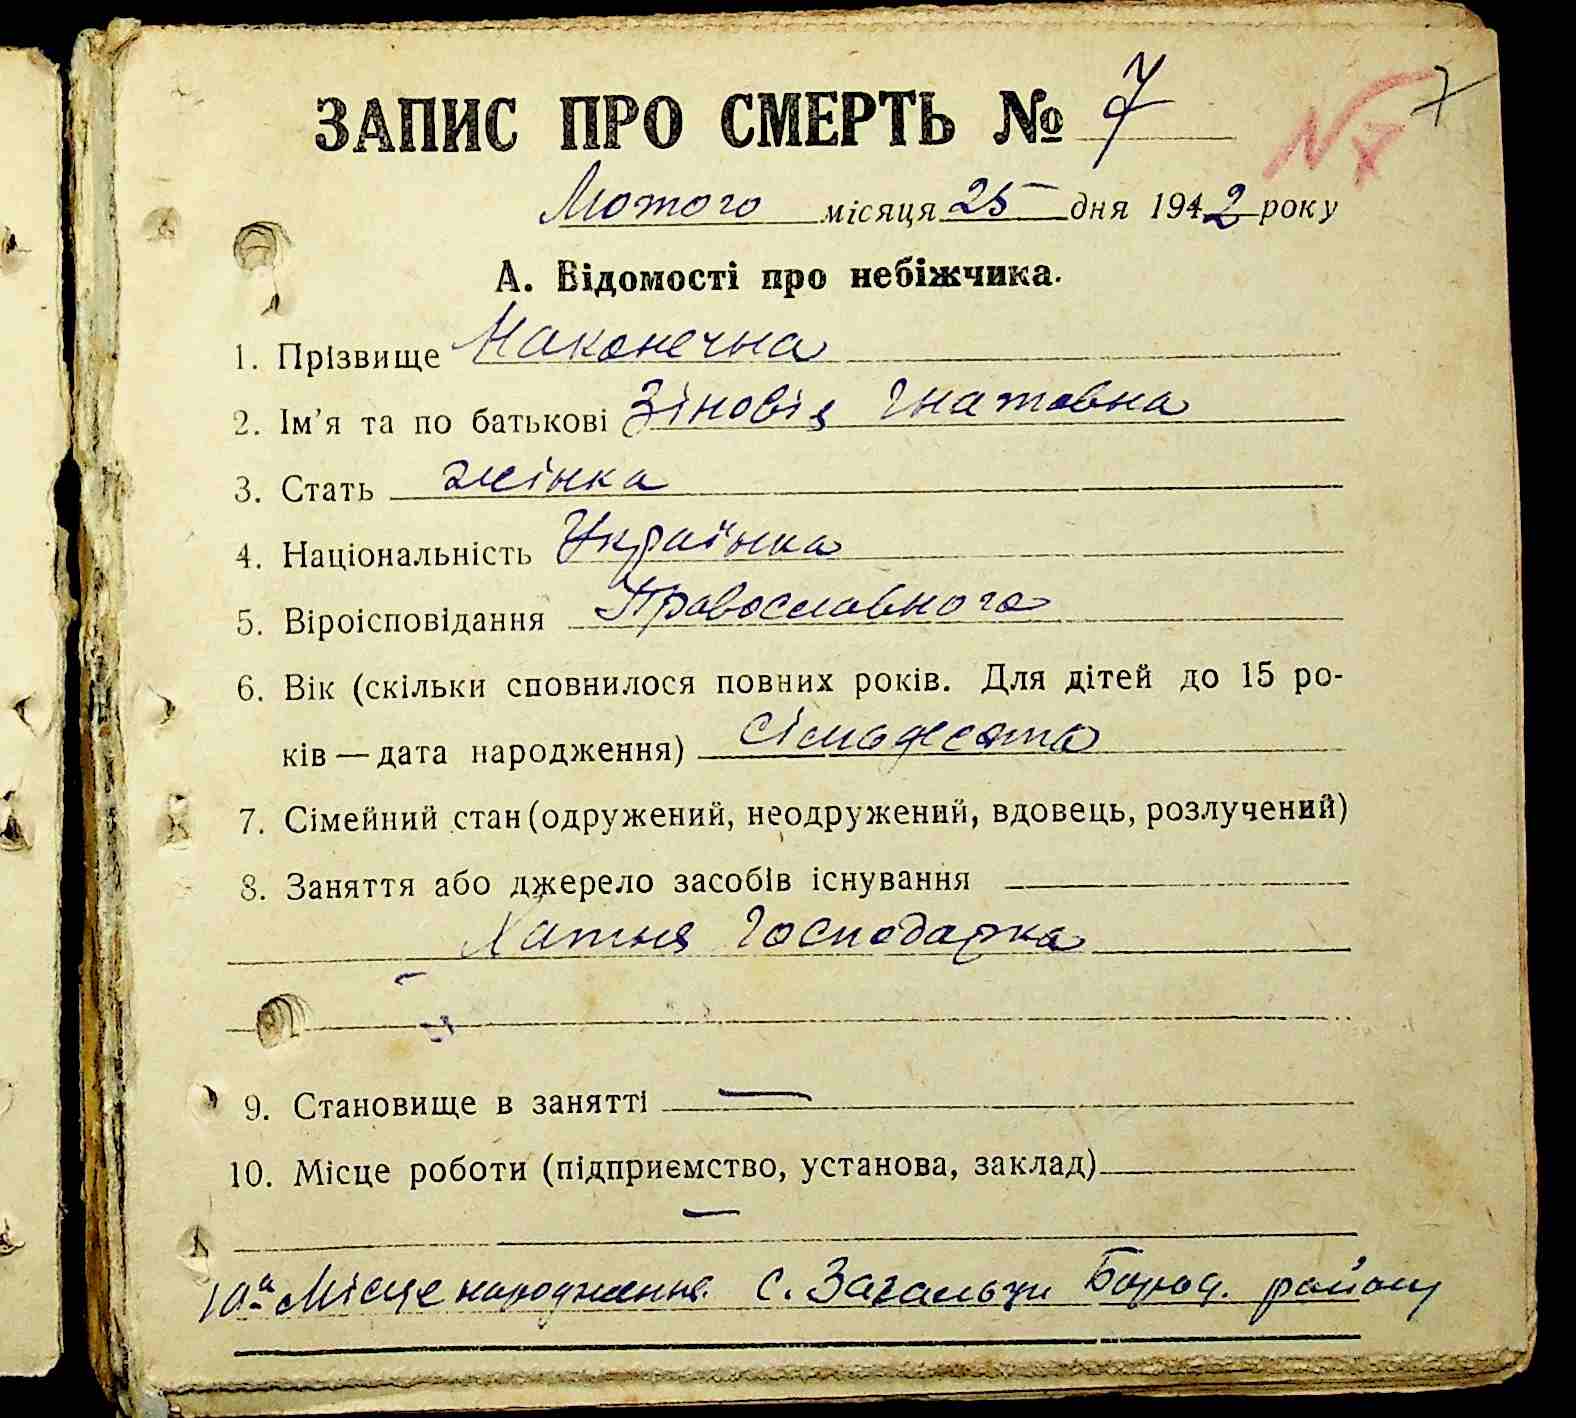 ЗАПИС ПРО СМЕРТЬ № 7
N 7 7
Лютого місяця 25 дня 1942 року
А. Відомості про небіжчика.
1. Прізвище Наконечна
2. Ім'я та по батькові Зіновія Гнатовна
3. Стать жінка
4. Національність Українка
5. Віроісповідання Православного
6. Вік (скільки сповнилося повних років. Для дітей до 15 ро-
ків — дата народження) сімьдесята
7. Сімейний стан (одружений, неодружений, вдовець, розлучений)
8. Заняття або джерело засобів існування
Хатня господарка
9. Становище в занятті —
10. Місце роботи (підприємство, установа, заклад)
—
10а Місце народження с. Загальци Бород. району